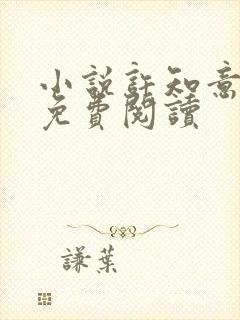 小說許知意
免費閱讀
謙葉